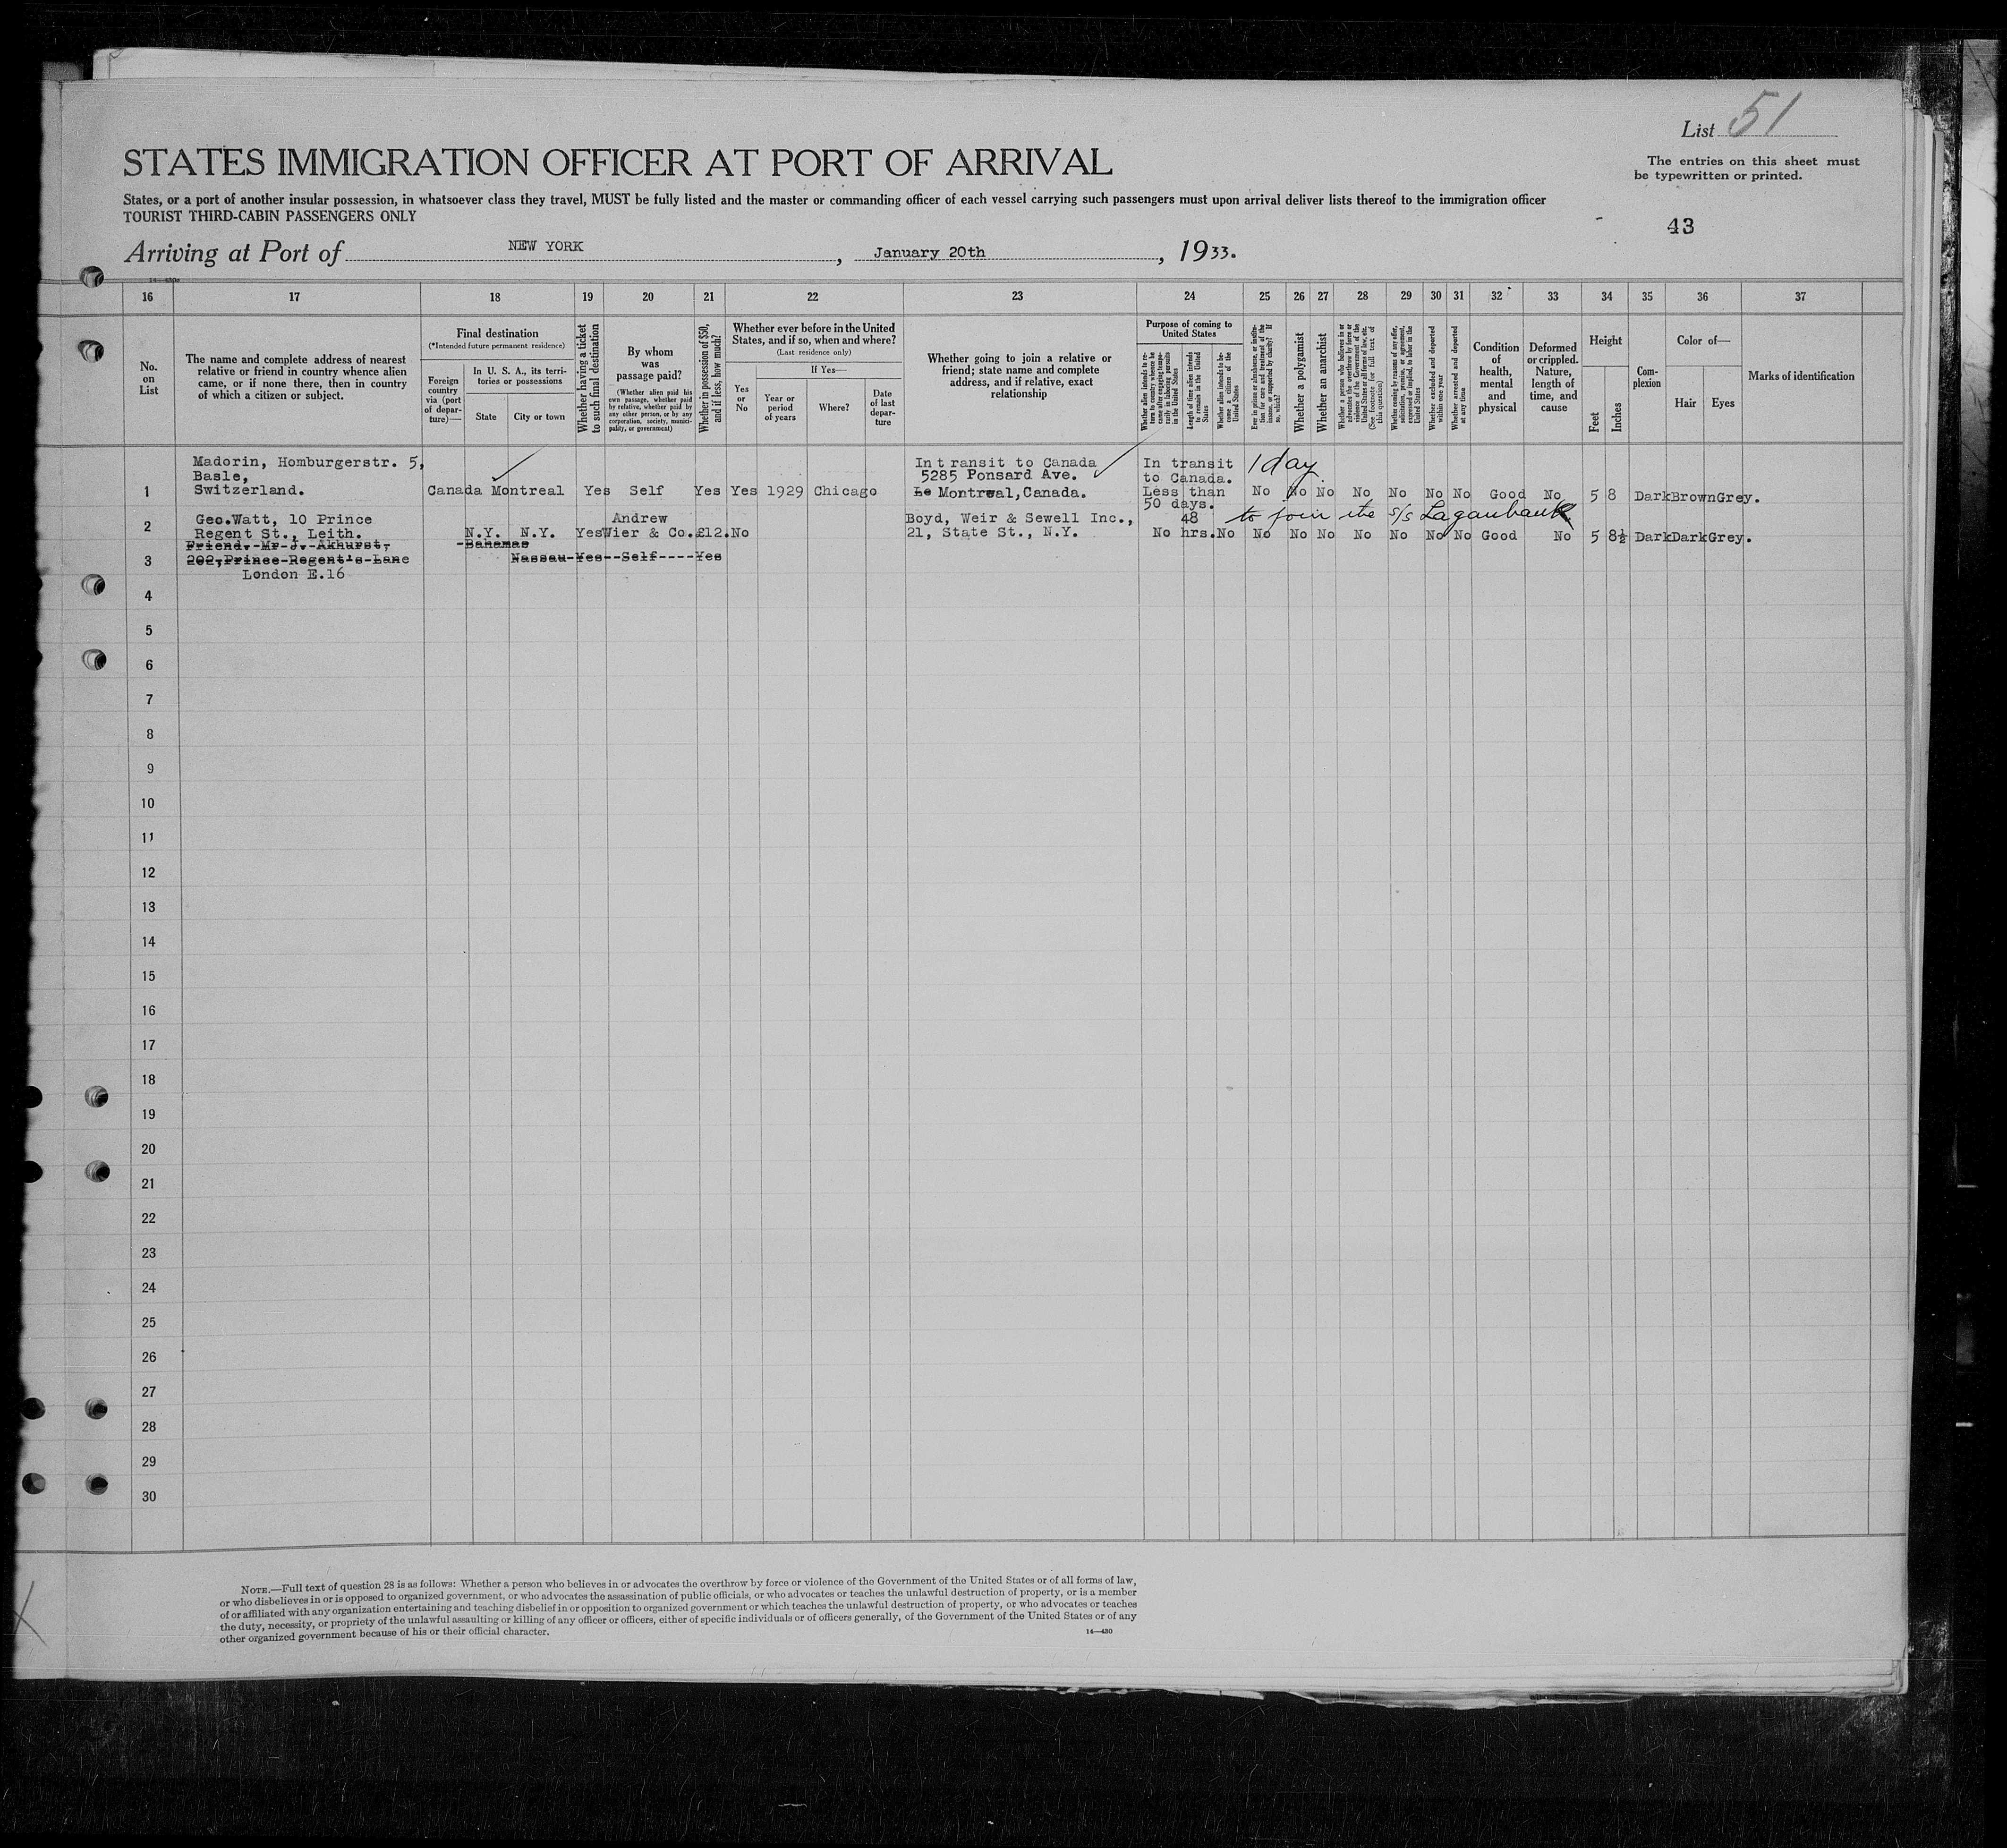 List 51
STATES IMMIGRATION OFFICER AT PORT OF ARRIVAL
The entries on this sheet must
be typewritten or printed.
States, or a port of another insular possession, in whatsoever class they travel, MUST be fully listed and the master or commanding officer of each vessel carrying such passengers must upon arrival deliver lists thereof to the immigration officer
TOURIST THIRD-CABIN PASSENGERS ONLY
43
Arriving at Port of NEW YORK, January 20th, 1933.
16 17 18 19 20 21 22 23 24 25 26 27 28 29 30 31 32 33 34 35 36 37
No.
on
List
The name and complete address of nearest
relative or friend in country whence alien
came, or if none there, then in country
of which a citizen or subject.
Final destination
(*Intended future permanent residence)
Foreign
country
via (port
of depar-
ture)—
In U. S. A., its terri-
tories or possessions
State
City or town
Whether having a ticket
to such final destination
By whom
was
passage paid?
(Whether alien paid his
own passage, whether paid
by relative, whether paid by
any other person, or by any
corporation, society, munici-
pality, or government)
Whether in possession of $50,
and if less, how much?
Whether ever before in the United
States, and if so, when and where?
(Last residence only)
Yes
or
No
If Yes—
Year or
period
of years
Where?
Date
of last
depar-
ture
Whether going to join a relative or
friend; state name and complete
address, and if relative, exact
relationship
Purpose of coming to
United States
Whether alien intends to re-
turn to country whence he
came after engaging tempo-
rarily in laboring pursuits
in the United States
Length of time alien intends
to remain in the United
States
Whether alien intends to be-
come a citizen of the
United States
Ever in prison or almshouse, or institu-
tion for care and treatment of the
insane, or supported by charity? If
so, which?
Whether a polygamist
Whether an anarchist
Whether a person who believes in or
advocates the overthrow by force or
violence of the Government of the
United States or all forms of law, etc.
(See footnote for full text of
this question)
Whether coming by reasons of any offer,
solicitation, promise, or agreement,
expressed or implied, to labor in the
United States
Whether excluded and deported
within one year
Whether arrested and deported
at any time
Condition
of
health,
mental
and
physical
Deformed
or crippled.
Nature,
length of
time, and
cause
Height
Feet
Inches
Com-
plexion
Color of—
Hair
Eyes
Marks of identification
Madorin, Homburgerstr. 5, In transit to Canada In transit 1 day
Basle, 5285 Ponsard Ave. to Canada.
1 Switzerland. Canada Montreal Yes Self Yes Yes 1929 Chicago Le Montreal, Canada. Less than No No No No No No No Good No 5 8 Dark Brown Grey.
50 days.
Geo.Watt, 10 Prince Andrew Boyd, Weir & Sewell Inc., 48 to join the s/s Laganbank
2 Regent St., Leith. N.Y. N.Y. Yes Wier & Co. £12. No 21, State St., N.Y. No hrs. No No No No No No No No Good No 5 8½ Dark Dark Grey.
Friend, Mr J. Akhurst, Bahamas
3 202, Prince Regent's Lane Nassau Yes Self Yes
London E.16
4
5
6
7
8
9
10
11
12
13
14
15
16
17
18
19
20
21
22
23
24
25
26
27
28
29
30
NOTE.—Full text of question 28 is as follows: Whether a person who believes in or advocates the overthrow by force or violence of the Government of the United States or of all forms of law,
or who disbelieves in or is opposed to organized government, or who advocates the assassination of public officials, or who advocates or teaches the unlawful destruction of property, or is a member
of or affiliated with any organization entertaining and teaching disbelief in or opposition to organized government or which teaches the unlawful destruction of property, or who advocates or teaches
the duty, necessity, or propriety of the unlawful assaulting or killing of any officer or officers, either of specific individuals or of officers generally, of the Government of the United States or of any
other organized government because of his or their official character.
14—430